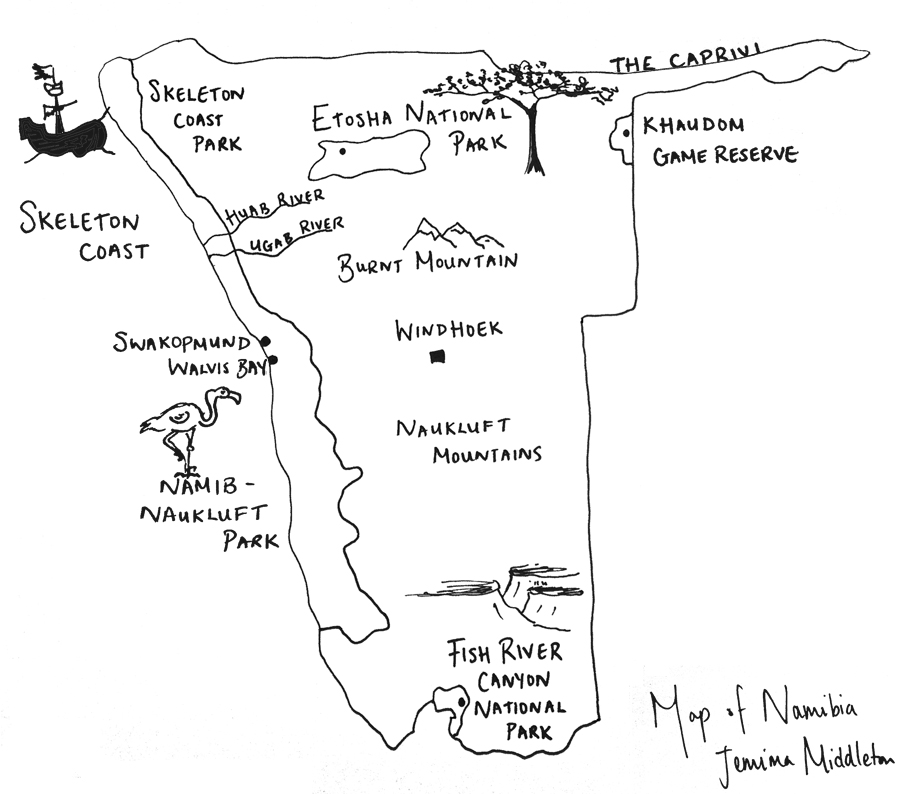 THE CAPRIVI
SKELETON
COAST
PARK
ETOSHA NATIONAL
PARK
KHAUDOM
GAME RESERVE
HUAB RIVER
UGAB RIVER
SKELETON
COAST
BURNT MOUNTAIN
WINDHOEK
SWAKOPMUND
WALVIS BAY
NAUKLUFT
MOUNTAINS
NAMIB-
NAUKLUFT
PARK
FISH RIVER
CANYON
NATIONAL
PARK
Map of Namibia
Jemima Middleton